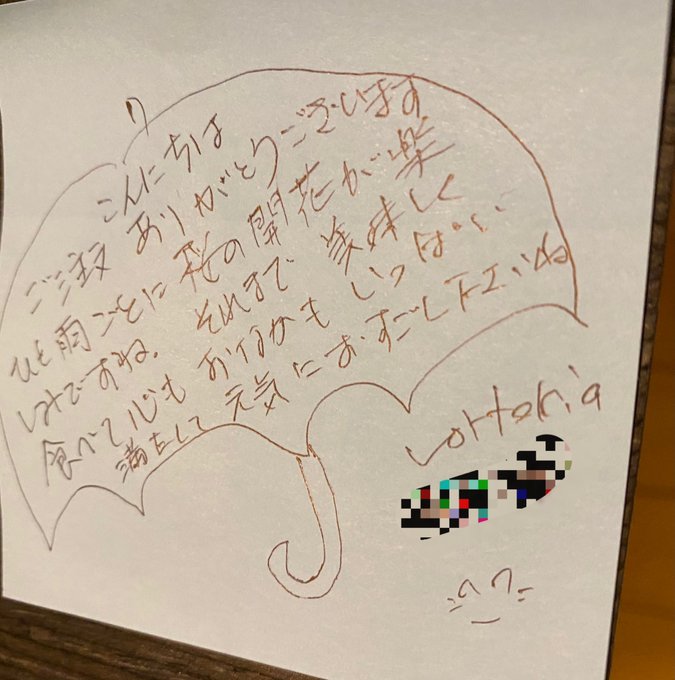 こんにちは
ご注文 ありがとうございます
ひと雨ごとに 桜の開花が楽
しみですね。 それまで 美味しく
食べて心も おなかも いっぱい
満たして 元気に おすごし下さいね